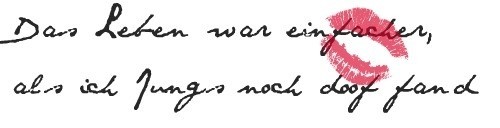 Das Leben war einfacher,
als ich Jungs noch doof fand